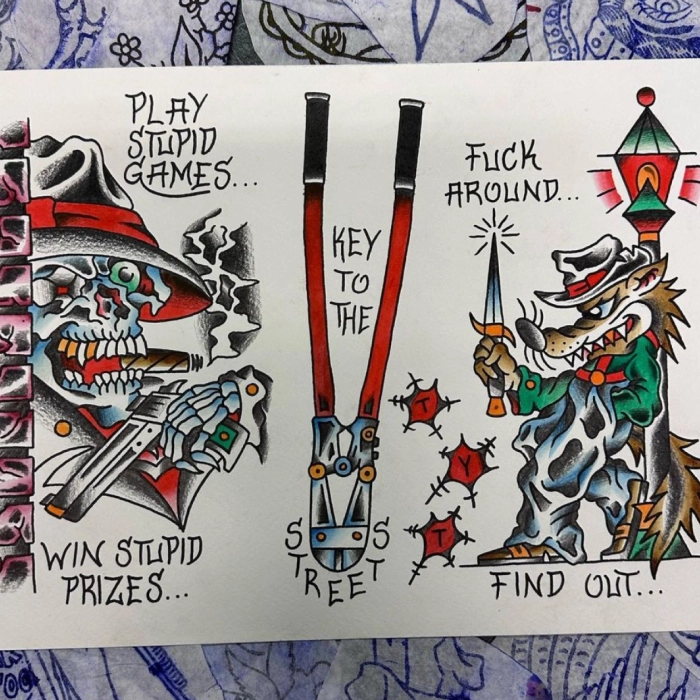 PLAY
STUPID
GAMES...
WIN STUPID
PRIZES...
KEY
TO
THE
STREETS
T
Y
T
FUCK
AROUND...
FIND OUT...